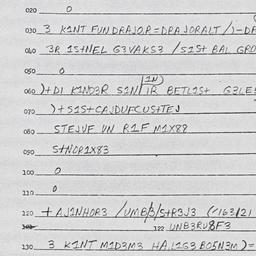 020 0
030 3 K1NT FUNDRAJOR=DRAJORALT /)-DR
040 3R 1S+NEL G3VAKS3 /S1S+ BAL GRO
050 0
(1N)
060 )+DI K1ND3R S1N/1R BETL1S+ G3LE
070 )+S1S+CAJDUFCUS+TEJ
080 STEJVF VN R1F M1X88
090 S+NOR1X83
100 0
110 0
120 +AJ1NHOR3 /UMB/3/S+R3J3 (/163/21
122 UNB3RU8F3
130 3 K1NT M1D3M3 HA,L1G3 BO5N3M)=